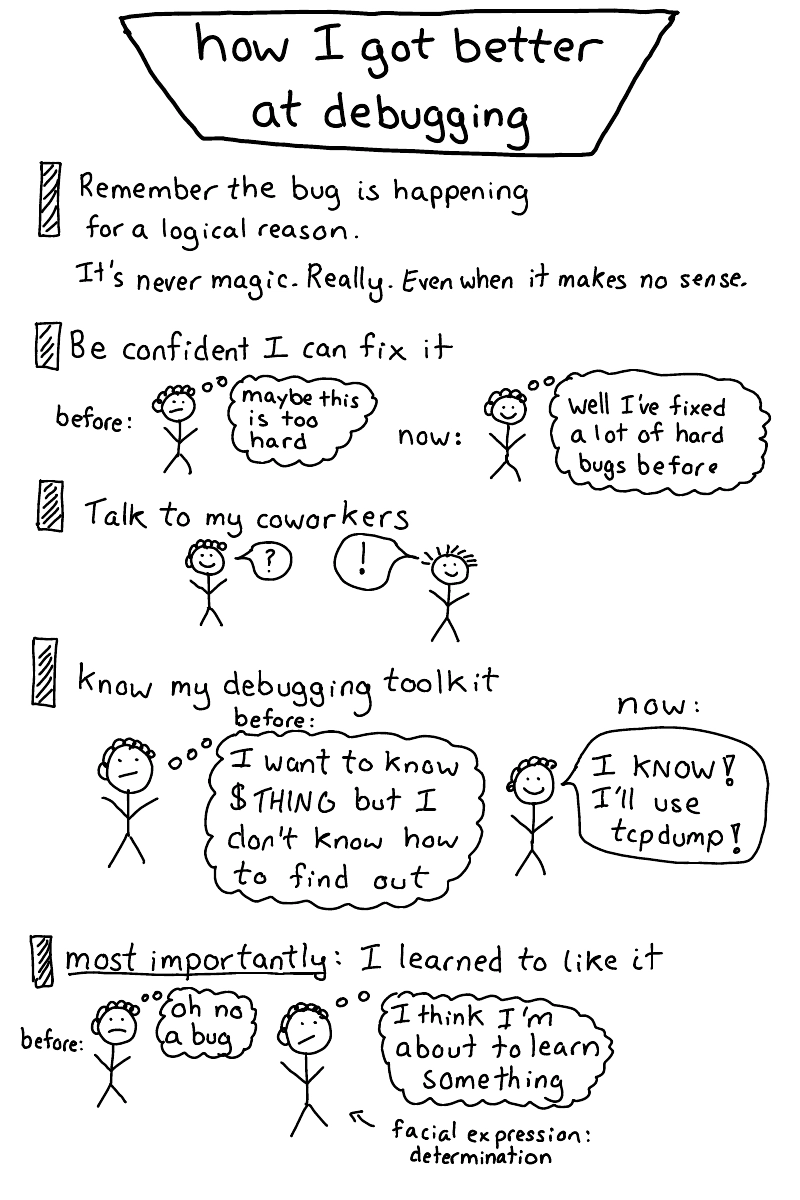 how I got better
at debugging
Remember the bug is happening
for a logical reason.
It's never magic. Really. Even when it makes no sense.
Be confident I can fix it
before:
maybe this
is too
hard
now:
well I've fixed
a lot of hard
bugs before
Talk to my coworkers
?
!
know my debugging toolkit
before:
I want to know
$THING but I
don't know how
to find out
now:
I KNOW!
I'll use
tcpdump!
most importantly: I learned to like it
before:
oh no
a bug
I think I'm
about to learn
something
facial expression:
determination